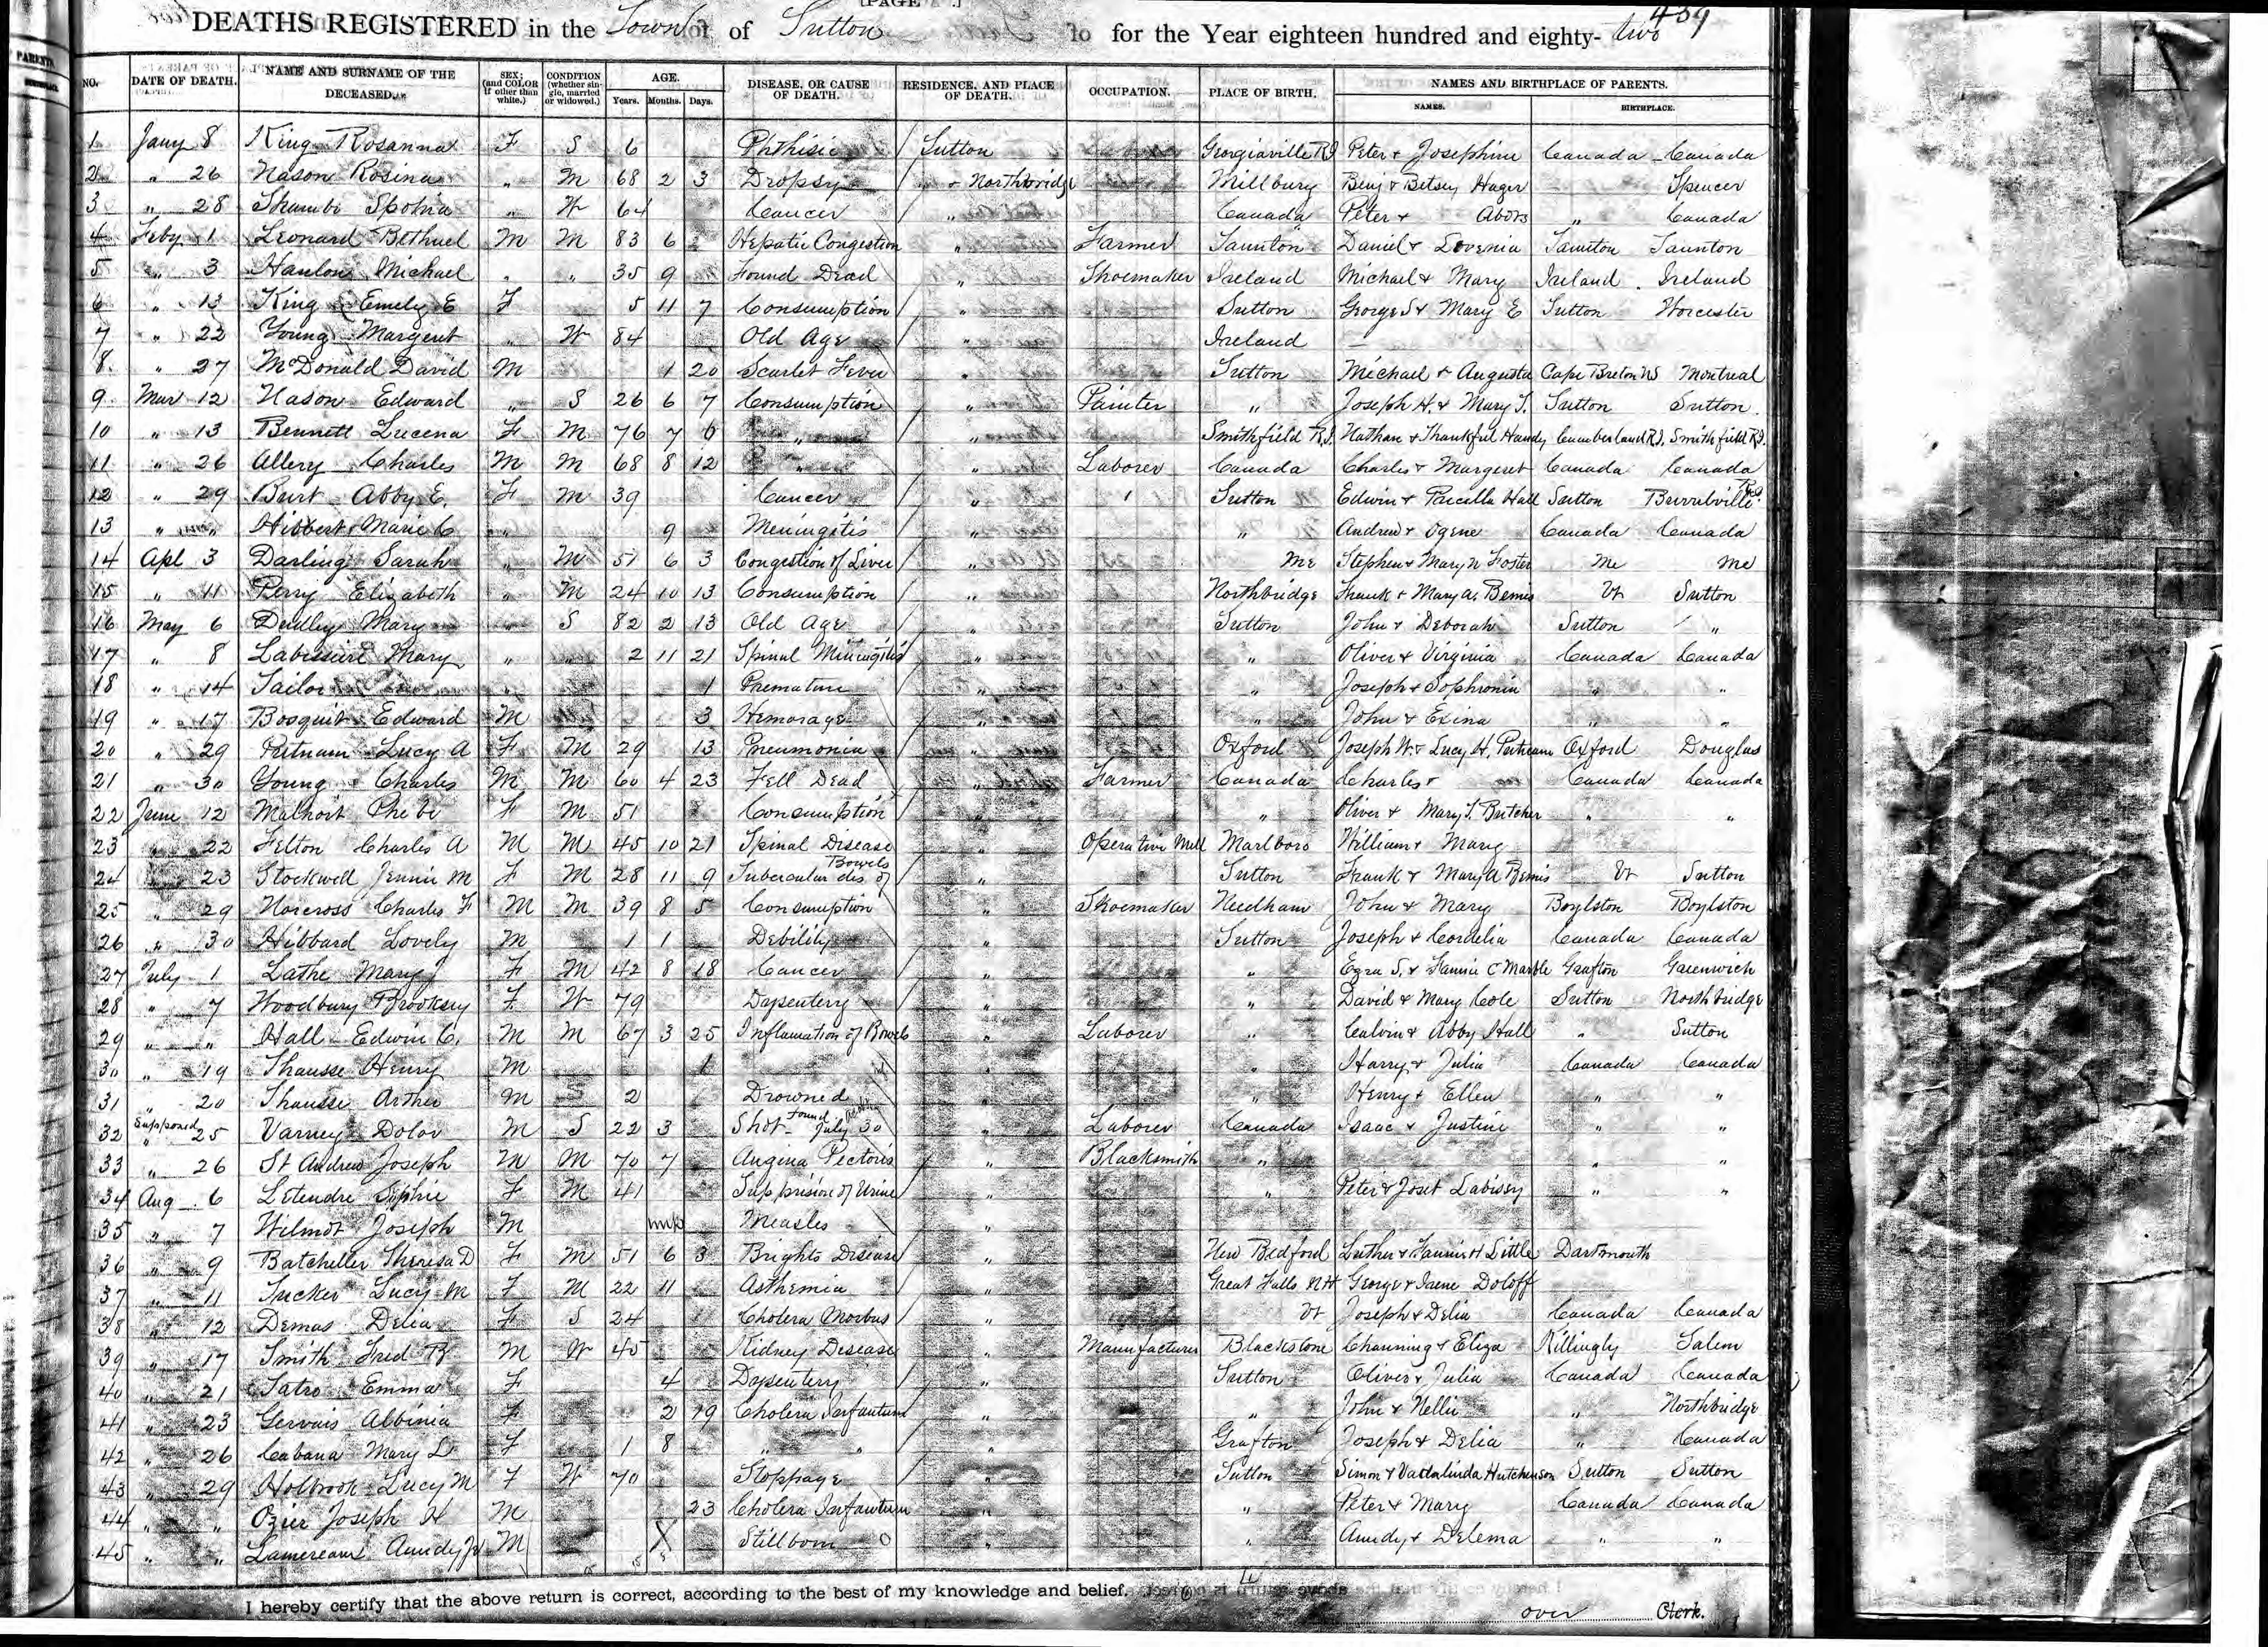 [PAGE .]
459
DEATHS REGISTERED in the Town of Sutton for the Year eighteen hundred and eighty- two
NO. DATE OF DEATH. NAME AND SURNAME OF THE DECEASED. SEX; (and COLOR if other than white.) CONDITION (whether single, married or widowed.) AGE. Years. Months. Days. DISEASE, OR CAUSE OF DEATH. RESIDENCE, AND PLACE OF DEATH. OCCUPATION. PLACE OF BIRTH. NAMES AND BIRTHPLACE OF PARENTS. NAMES. BIRTHPLACE.
1 Jany 8 King Rosanna F S 6 Phthisic Sutton Georgiaville R.I Peter & Josephine Canada Canada
2 " 26 Nason Rosina " M 68 2 3 Dropsy " & Northbridge Millbury Benj & Betsey Hager Spencer
3 " 28 W 64 Cancer " Canada Peter & Abors " Canada
4 Feby 1 Leonard Bethuel M M 83 6 Hepatic Congestion " Farmer Taunton Daniel & Lovenia Taunton Taunton
5 " 3 Hanlon Michael " " 35 9 Found Dead " Shoemaker Ireland Michael & Mary Ireland Ireland
6 " 13 King Emely E F 5 11 7 Consumption " Sutton George S & Mary E Sutton Worcester
7 " 22 Young Margent " W 84 Old Age " Ireland —
8 " 27 McDonald David M 1 20 Scarlet Fever " Sutton Michael & Augusta Cape Breton NS Montreal
9 Mar 12 Nason Edward " S 26 6 7 Consumption " Painter " Joseph H. & Mary T. Sutton Sutton
10 " 13 Bennett Lucena F M 76 7 6 " " Smithfield R.I. Nathan & Thankful Handy Cumberland R.I. Smithfield R.I.
11 " 26 Allery Charles M M 68 8 12 " " Laborer Canada Charles & Margeret Canada Canada
12 " 29 Burt Abby E. F M 39 Cancer " Sutton Edwin & Hall Sutton Burrilville R.I.
13 " " Hibbert Marie C " 9 Meningitis " " Andrew & Ogene Canada Canada
14 Apl 3 Darling Sarah " M 51 6 3 Congestion of Liver " Me Stephen & Mary N Foster Me Me
15 " 11 Perry Elizabeth " M 24 10 13 Consumption " Northbridge Frank & Mary A. Bemis Vt Sutton
16 May 6 Dudley Mary " S 82 2 13 Old Age " Sutton John & Deborah Sutton "
17 " 8 Labissiere Mary " 2 11 21 Spinal Miningitis " " Oliver & Virginia Canada Canada
18 " 14 Tailor " 1 Premature " " Joseph & Sophronia " "
19 " 17 Bosquit Edward M 3 Hemorage " " John & Exina " "
20 " 29 Putnam Lucy A F M 29 13 Pneumonia " Oxford Joseph W. & Lucy H. Putnam Oxford Douglas
21 " 30 Young Charles M M 60 4 23 Fell Dead " Farmer Canada Charles & Canada Canada
22 June 12 Malhoit Phebe F M 51 Consumption " Oliver & Mary T. Butcher " "
23 " 22 Felton Charles A M M 45 10 21 Spinal Disease Operative Mill Marlboro William & Mary
24 " 23 Stockwell Jennie M F M 28 11 9 Tubercular dis. of Bowels " Sutton Frank & Mary A Bemis Vt Sutton
25 " 29 Norcross Charles F M M 39 8 5 Consumption " Shoemaker Needham John & Mary Boylston Boylston
26 " 30 Hibbard Lovely M 1 1 Debility " Sutton Joseph & Cordelia Canada Canada
27 July 1 Lathe Mary J F M 42 8 18 Cancer " " Ezra S. & Fannie C Marble Grafton Greenwich
28 " 7 Woodbury Brooksey F W 79 Dysentery " " David & Mary Cole Sutton Northbridge
29 " " Hall Edwin C. M M 67 3 25 Inflamation of Bowels " Laborer " Calvin & Abby Hall " Sutton
30 " 19 Shausse Henry M 1 " " Harry & Julia Canada Canada
31 " 20 Shausse Arther M S 2 Drowned " " Henry & Ellen " "
32 Supposed " 25 Varney Dolor M S 22 3 Shot found July 30 " Laborer Canada Isaac & Justine " "
33 " 26 St Andrew Joseph M M 70 7 Angina Pectoris " Blacksmith " " "
34 Aug 6 Letendre Sophie F M 41 Suppression of Urine " " Peter & Joset Labissy " "
35 " 7 Wilmot Joseph M Measles "
36 " 9 Batcheller Theresa D F M 51 6 3 Brights Disease " New Bedford Luther & Fannie H Little Dartmouth
37 " 11 Tucker Lucy M F M 22 11 Asthemia " Great Falls N.H George & Jane Doloff
38 " 12 Demas Delia F S 24 Cholera Morbus " Vt Joseph & Delia Canada Canada
39 " 17 Smith Fred B M W 45 Kidney Disease " Manufacturer Blackstone Channing & Eliza Killingly Salem
40 " 21 Tatro Emma F 4 Dysentery " Sutton Oliver & Julia Canada Canada
41 " 23 Gervais Albinia F 2 19 Cholera Infantum " " John & Nellie " Northbridge
42 " 26 Cabana Mary L F 1 8 " " " Grafton Joseph & Delia " Canada
43 " 29 Holbrook Lucy M F W 70 Stoppage " Sutton Simon & Vandalinda Hutchinson Sutton Sutton
44 " " Ozier Joseph H M 23 Cholera Infantum " " Peter & Mary Canada Canada
45 " " Lamereaux Amedy Jr M X Stillborn O " " Amedy & Delema " "
I hereby certify that the above return is correct, according to the best of my knowledge and belief.
over Clerk.